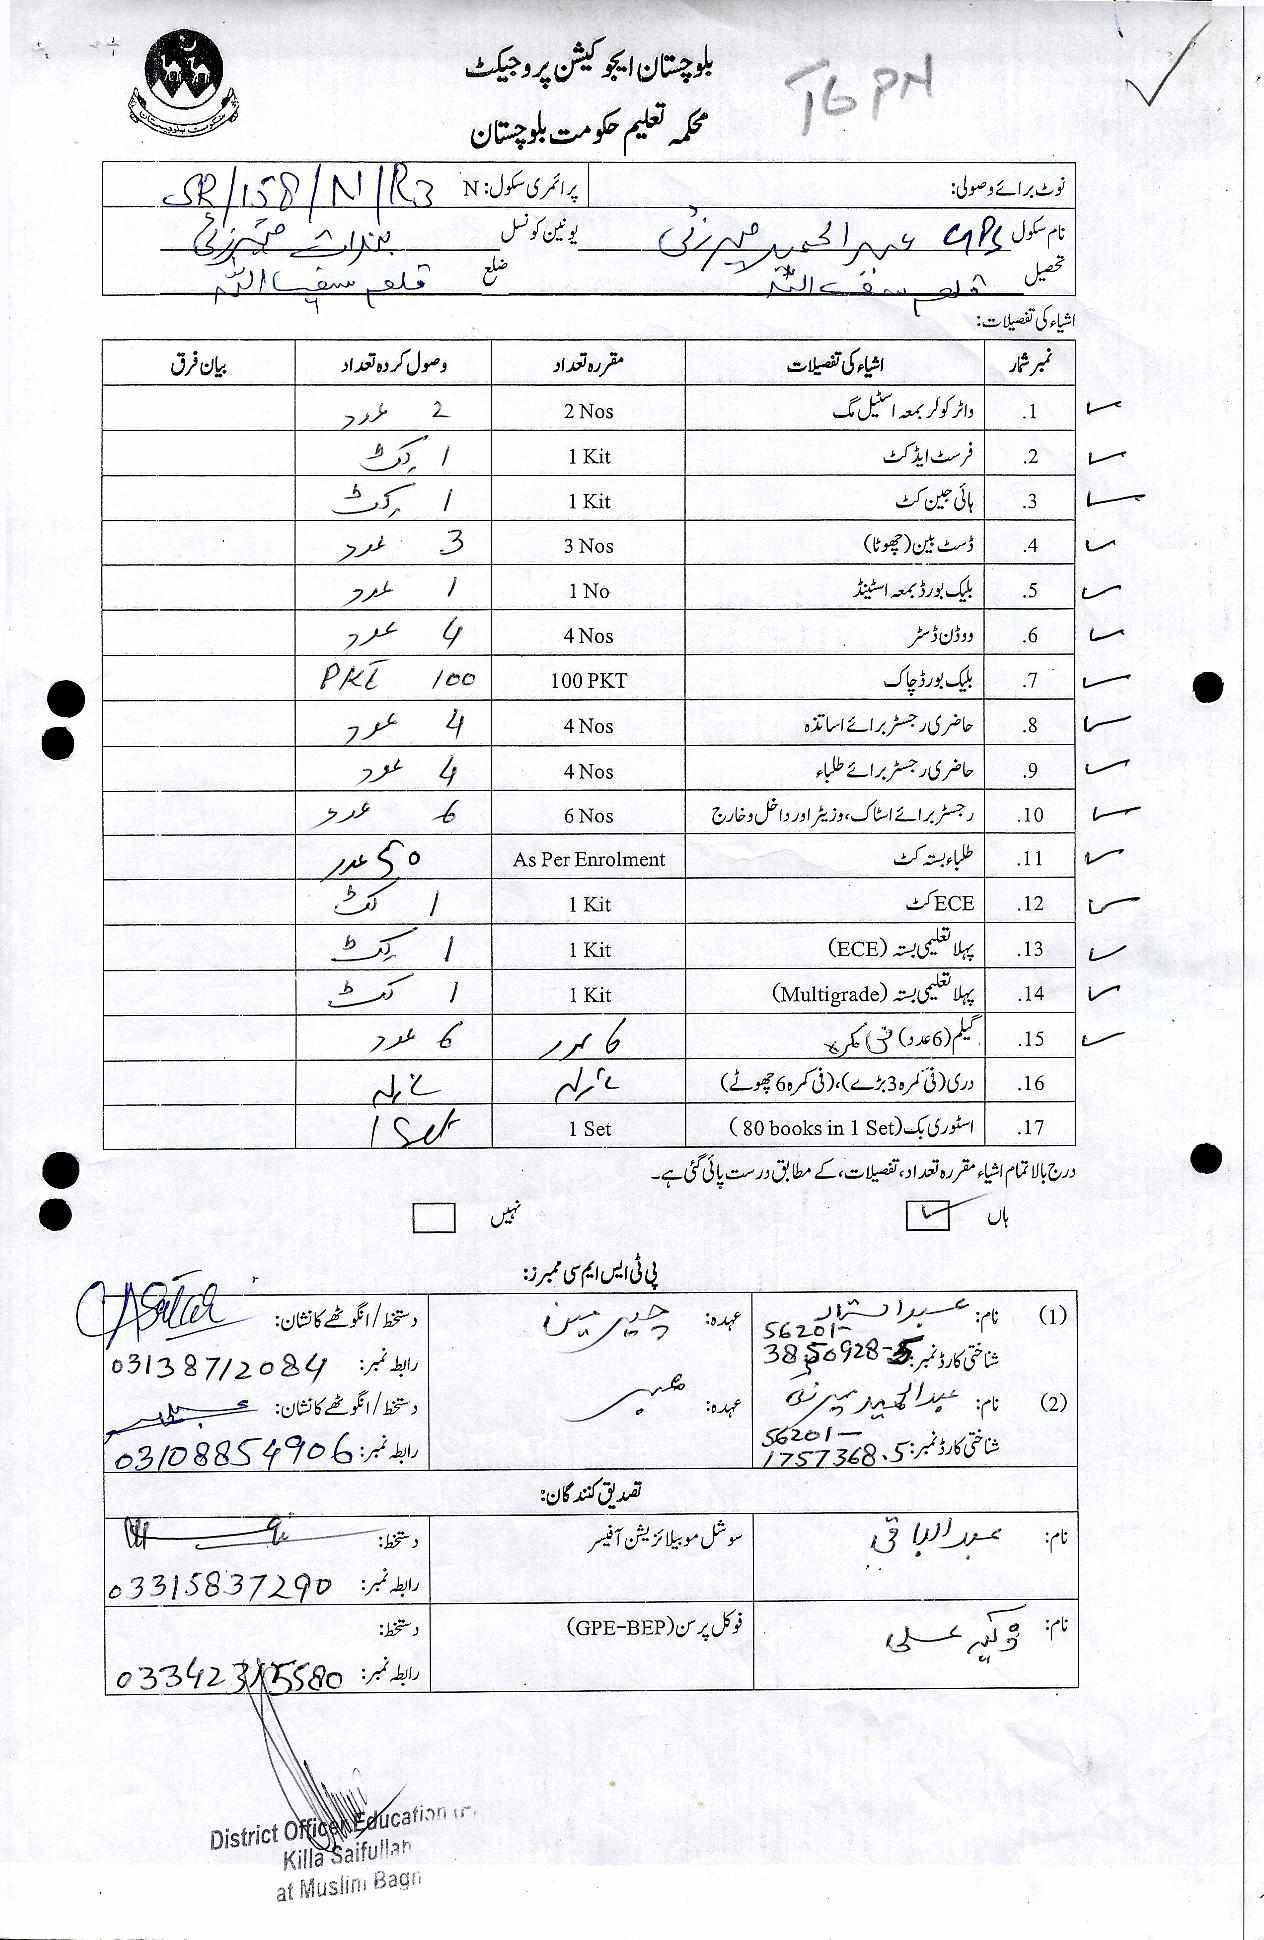 بلوچستان ایجوکیشن پروجیکٹ
محکمہ تعلیم حکومت بلوچستان
TGPN
نوٹ برائے وصولی: پرائمری سکول: N SR/158/N/R3
نام سکول GPS عبدالحمید میرزئی یونین کونسل
تحصیل قلعہ سیف اللہ ضلع قلعہ سیف اللہ
اشیاء کی تفصیلات:
نمبر شمار اشیاء کی تفصیلات مقررہ تعداد وصول کردہ تعداد بیان فرق
1. واٹر کولر بمعہ اسٹیل مگ 2 Nos 2 عدد
2. فرسٹ ایڈ کٹ 1 Kit 1 کِٹ
3. ہائی جین کٹ 1 Kit 1 کِٹ
4. ڈسٹ بین (چھوٹا) 3 Nos 3 عدد
5. بلیک بورڈ بمعہ اسٹینڈ 1 No 1 عدد
6. ووڈن ڈسٹر 4 Nos 4 عدد
7. بلیک بورڈ چاک 100 PKT 100 PKT
8. حاضری رجسٹر برائے اساتذہ 4 Nos 4 عدد
9. حاضری رجسٹر برائے طلباء 4 Nos 4 عدد
10. رجسٹر برائے اسٹاک، وزیٹر اور داخل و خارج 6 Nos 6 عدد
11. طلباء بستہ کٹ As Per Enrolment 50 عدد
12. ECE کٹ 1 Kit 1 کٹ
13. پہلا تعلیمی بستہ (ECE) 1 Kit 1 کِٹ
14. پہلا تعلیمی بستہ (Multigrade) 1 Kit 1 کٹ
15. گیلم (6 عدد) فی کمرہ 6 عدد 6 عدد
16. دری (فی کمرہ 3 بڑے)، (فی کمرہ 6 چھوٹے)
17. اسٹوری بک (80 books in 1 Set) 1 Set 1 Set
درج بالا تمام اشیاء مقررہ تعداد، تفصیلات، کے مطابق درست پائی گئی ہے۔
ہاں نہیں
پی ٹی ایس ایم سی ممبرز:
(1) نام: عبدالستار عہدہ: چیرمین دستخط/انگوٹھے کا نشان:
شناختی کارڈ نمبر: 56201-3850928-5 رابطہ نمبر: 03138712084
(2) نام: عبدالحمید میرزئی عہدہ: ممبر دستخط/انگوٹھے کا نشان:
شناختی کارڈ نمبر: 56201-1757368-5 رابطہ نمبر: 03108854906
تصدیق کنندگان:
نام: عبدالباقی سوشل موبیلائزیشن آفیسر دستخط:
رابطہ نمبر: 03315837290
نام: ذکیہ علی فوکل پرسن (GPE-BEP) دستخط:
رابطہ نمبر: 03342315580
District Officer Education
Killa Saifullah
at Muslim Bagh